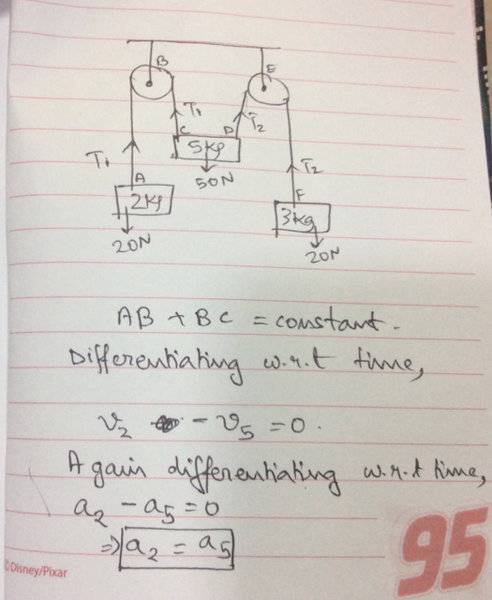 B
E
T1
C
D
T2
5kg
50N
T1
A
2kg
20N
T2
F
3kg
20N
AB + BC = constant.
Differentiating w.r.t time,
v2 - v5 = 0.
Again differentiating w.r.t time,
a2 - a5 = 0
⇒ a2 = a5
©Disney/Pixar
95